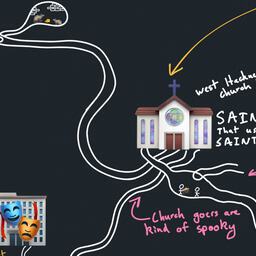 west Hackney
church
SAIN
That us
SAINT
Church goers are
kind of spooky